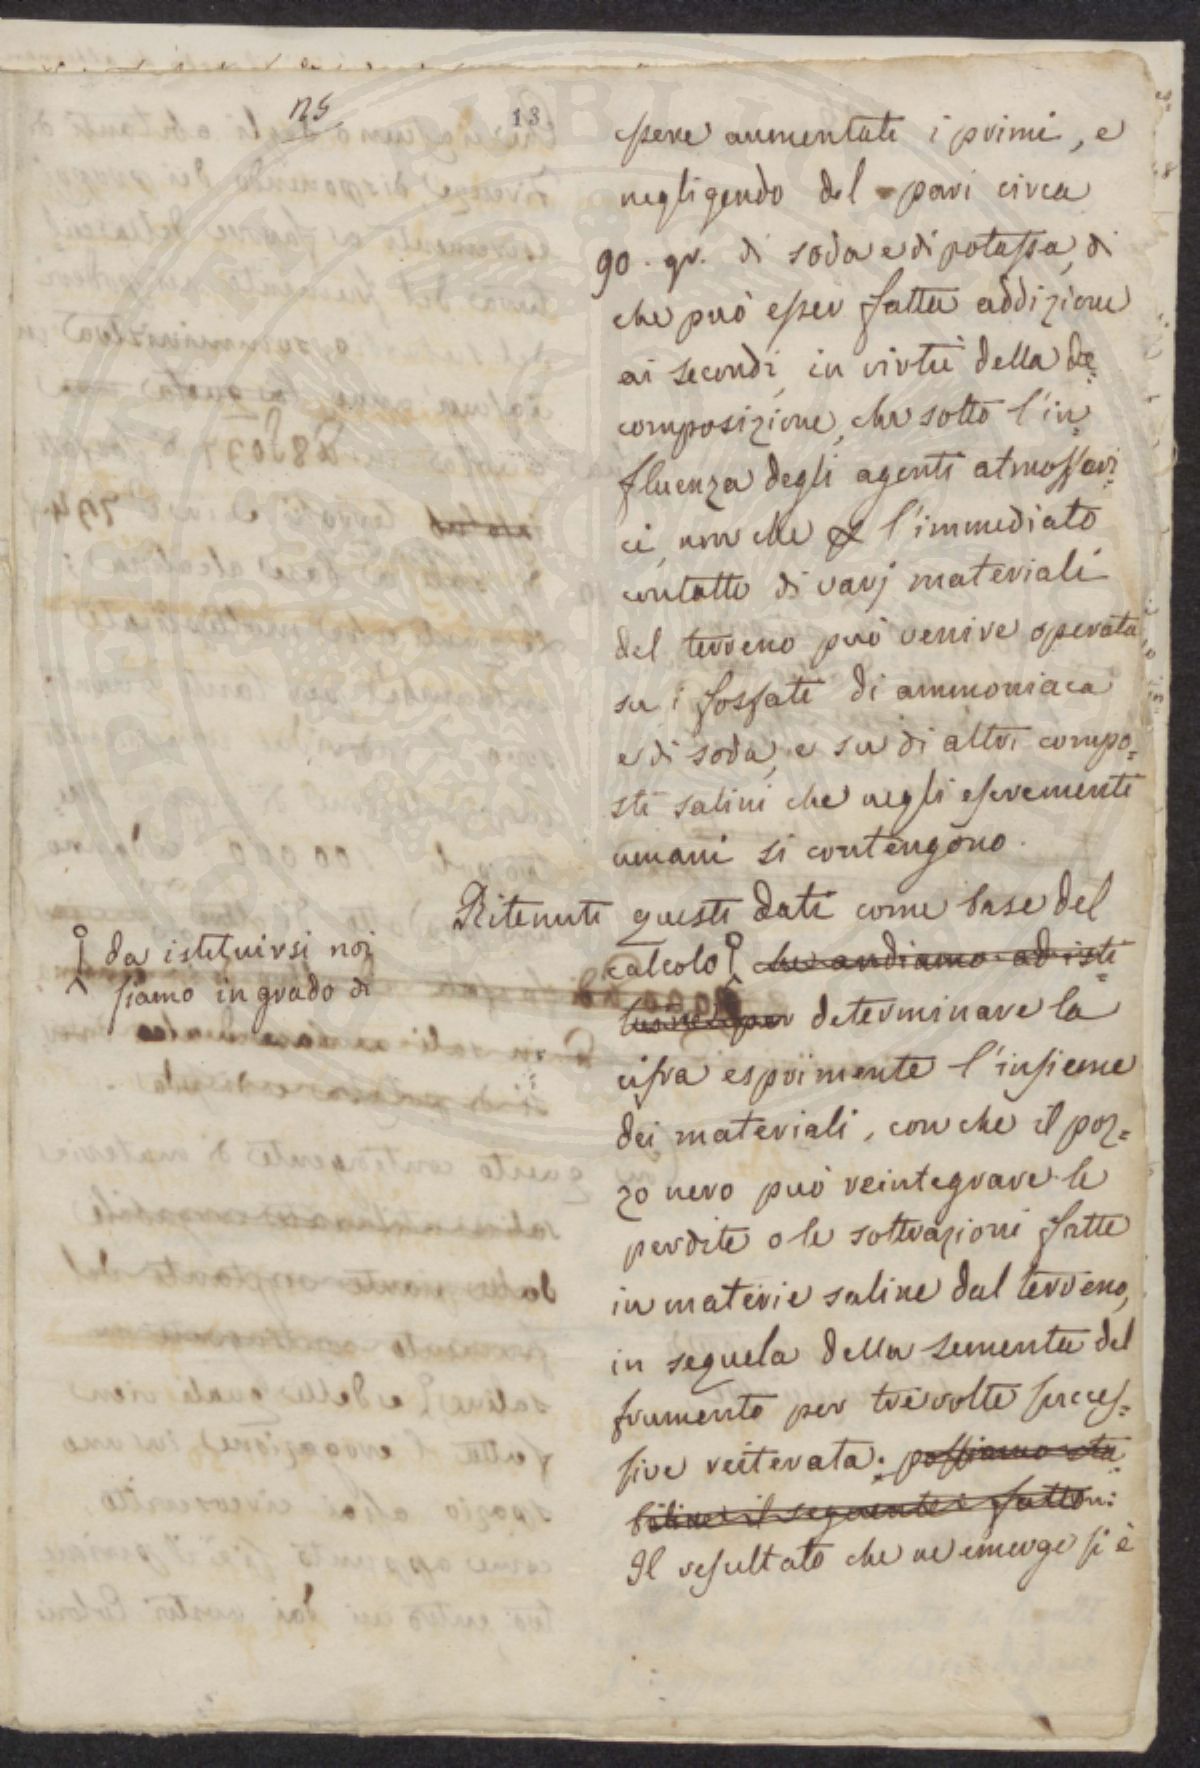 25
13
ssere aumentati i primi, e
negligendo del pari circa
90. gr. di soda e di potassa, di
che può esser fatta addizione
ai secondi, in virtù della de=
composizione, che sotto l'in=
fluenza degli agenti atmosferi=
ci, non che l'immediato
contatto di varj materiali
del terreno può venire operata
su i fosfati di ammoniaca
e di soda, e su di altri compo=
sti salini che negli escrementi
umani si contengono.
Ritenuti questi dati come base del
calcolo che andiamo ad isti=
tuire per determinare la
da istituirsi noi
siamo in grado di
cifra esprimente l'insieme
dei materiali, con che il poz=
zo nero può reintegrare le
perdite o le sottrazioni fatte
in materie saline dal terreno,
in sequela della sementa del
frumento per tre volte succes=
sive reiterata: possiamo sta=
bilire il seguente fatto:
Il resultato che ne emerge si è